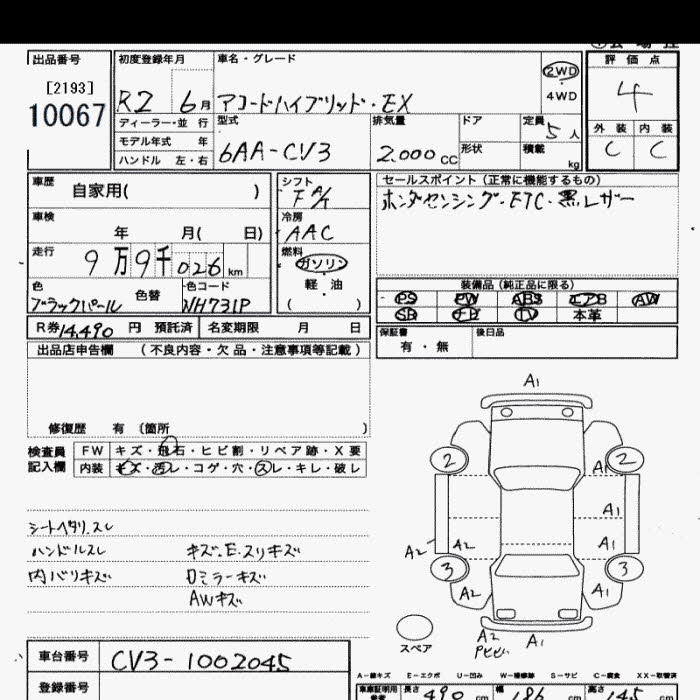 出品番号
[2193]
10067
初度登録年月
R2 6月
車名・グレード
アコードハイブリッド・EX
2WD
4WD
評価点
4
外装 内装
C C
ディーラー・並行
モデル年式 年
ハンドル 左・右
型式
6AA-CV3
排気量
2.000cc
ドア
形状
定員
5人
積載
kg
車歴
自家用( )
車検
年 月( 日)
走行
9万9千026km
色
ブラックパール
色替
色コード
NH731P
シフト
F A/T
冷房
AAC
燃料
ガソリン
軽・油
( )
セールスポイント(正常に機能するもの)
ホンダセンシング・ETC・黒レザー
装備品(純正品に限る)
PS PW ABS エアB AW
SR ナビ TV 本革
R券 14,490 円 預託済 名変期限 月 日
保証書
有・無
後日品
出品店申告欄 (不良内容・欠品・注意事項等記載)
修復歴 有 (箇所 )
検査員
記入欄
FW キズ・飛石・ヒビ割・リペア跡・X要
内装 キズ・汚レ・コゲ・穴・スレ・キレ・破レ
シートヘタリ.スレ
ハンドルスレ キズ.E.スリキズ
内バリキズ ロミラーキズ
AWキズ
A1
2
2
A1
A1
A2 A2
A1
3
3
A2
A1
スペア
A2
A1
車台番号
CV3-1002045
登録番号
A－線キズ E－エクボ U－凹み W－補修跡 S－サビ C－腐食 XX－取替済
車庫証明用
長さ 490 cm 幅 186 cm 高さ 145 cm